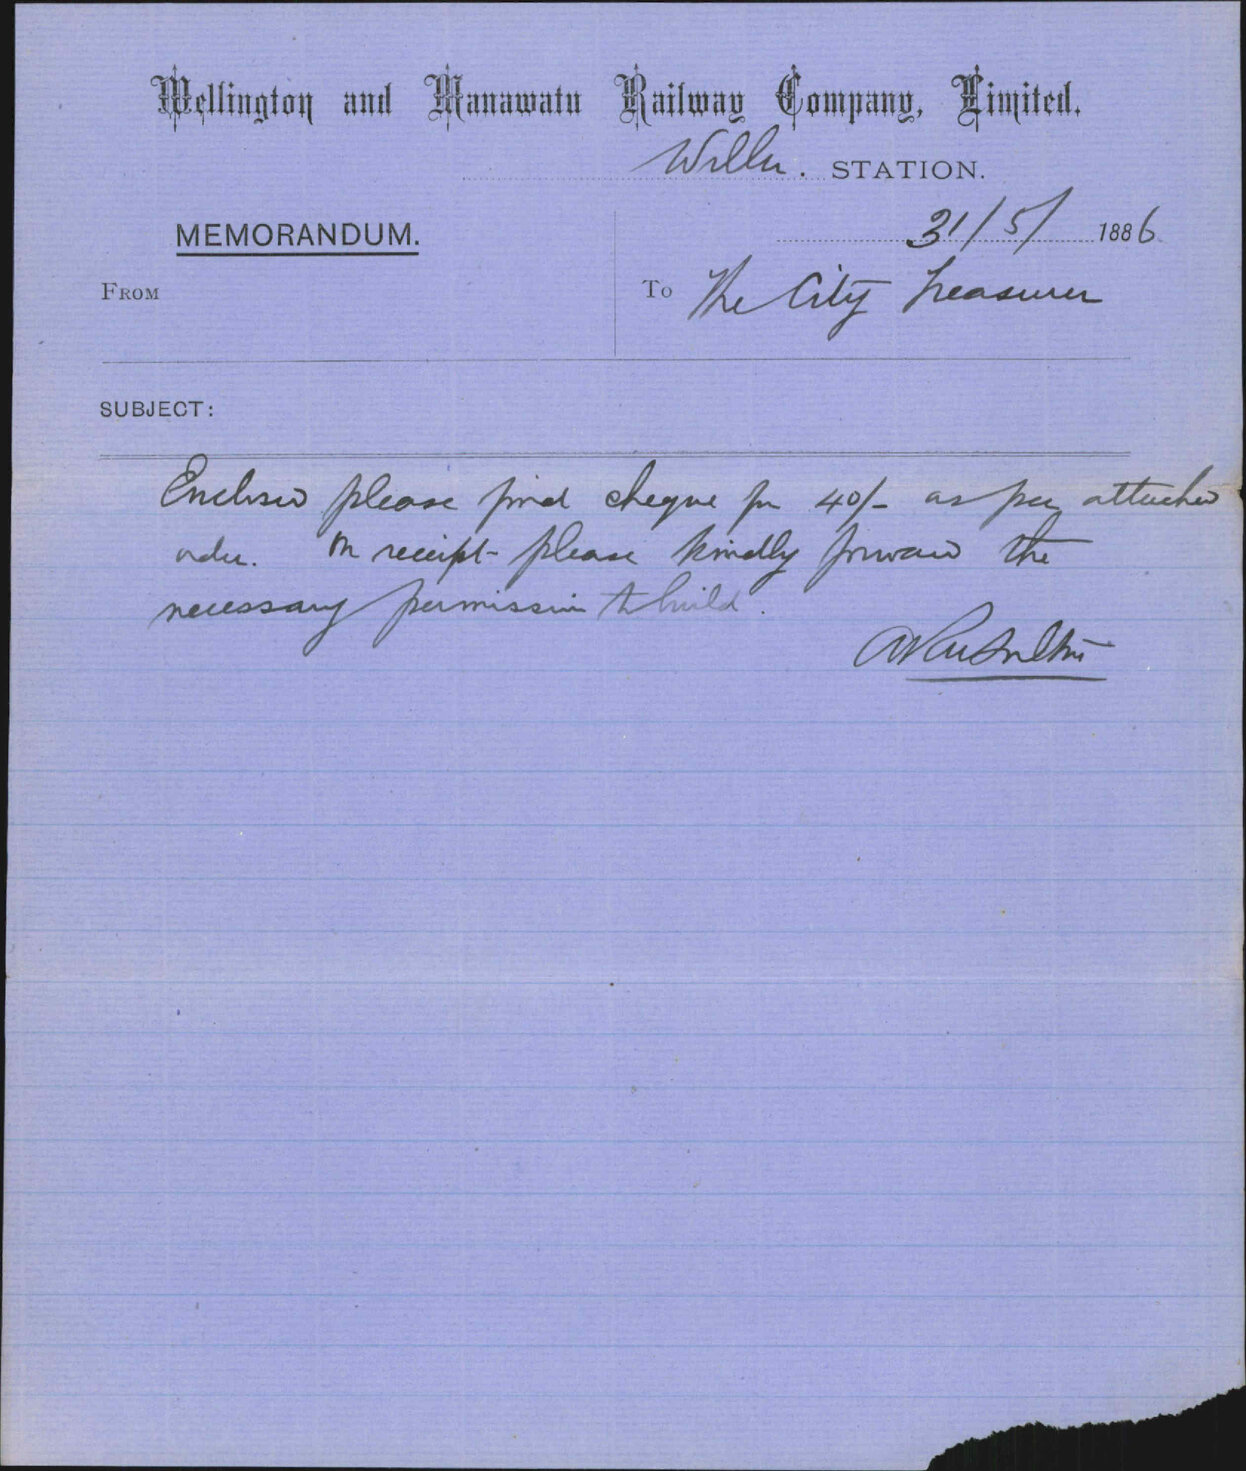 Wellington and Manawatu Railway Company, Limited.
STATION.
MEMORANDUM.
31/5/ 1886
FROM
To The City Treasurer
SUBJECT:
Enclosed please find cheque for 40/- as per attached
order. On receipt please kindly forward the
necessary permission to build.